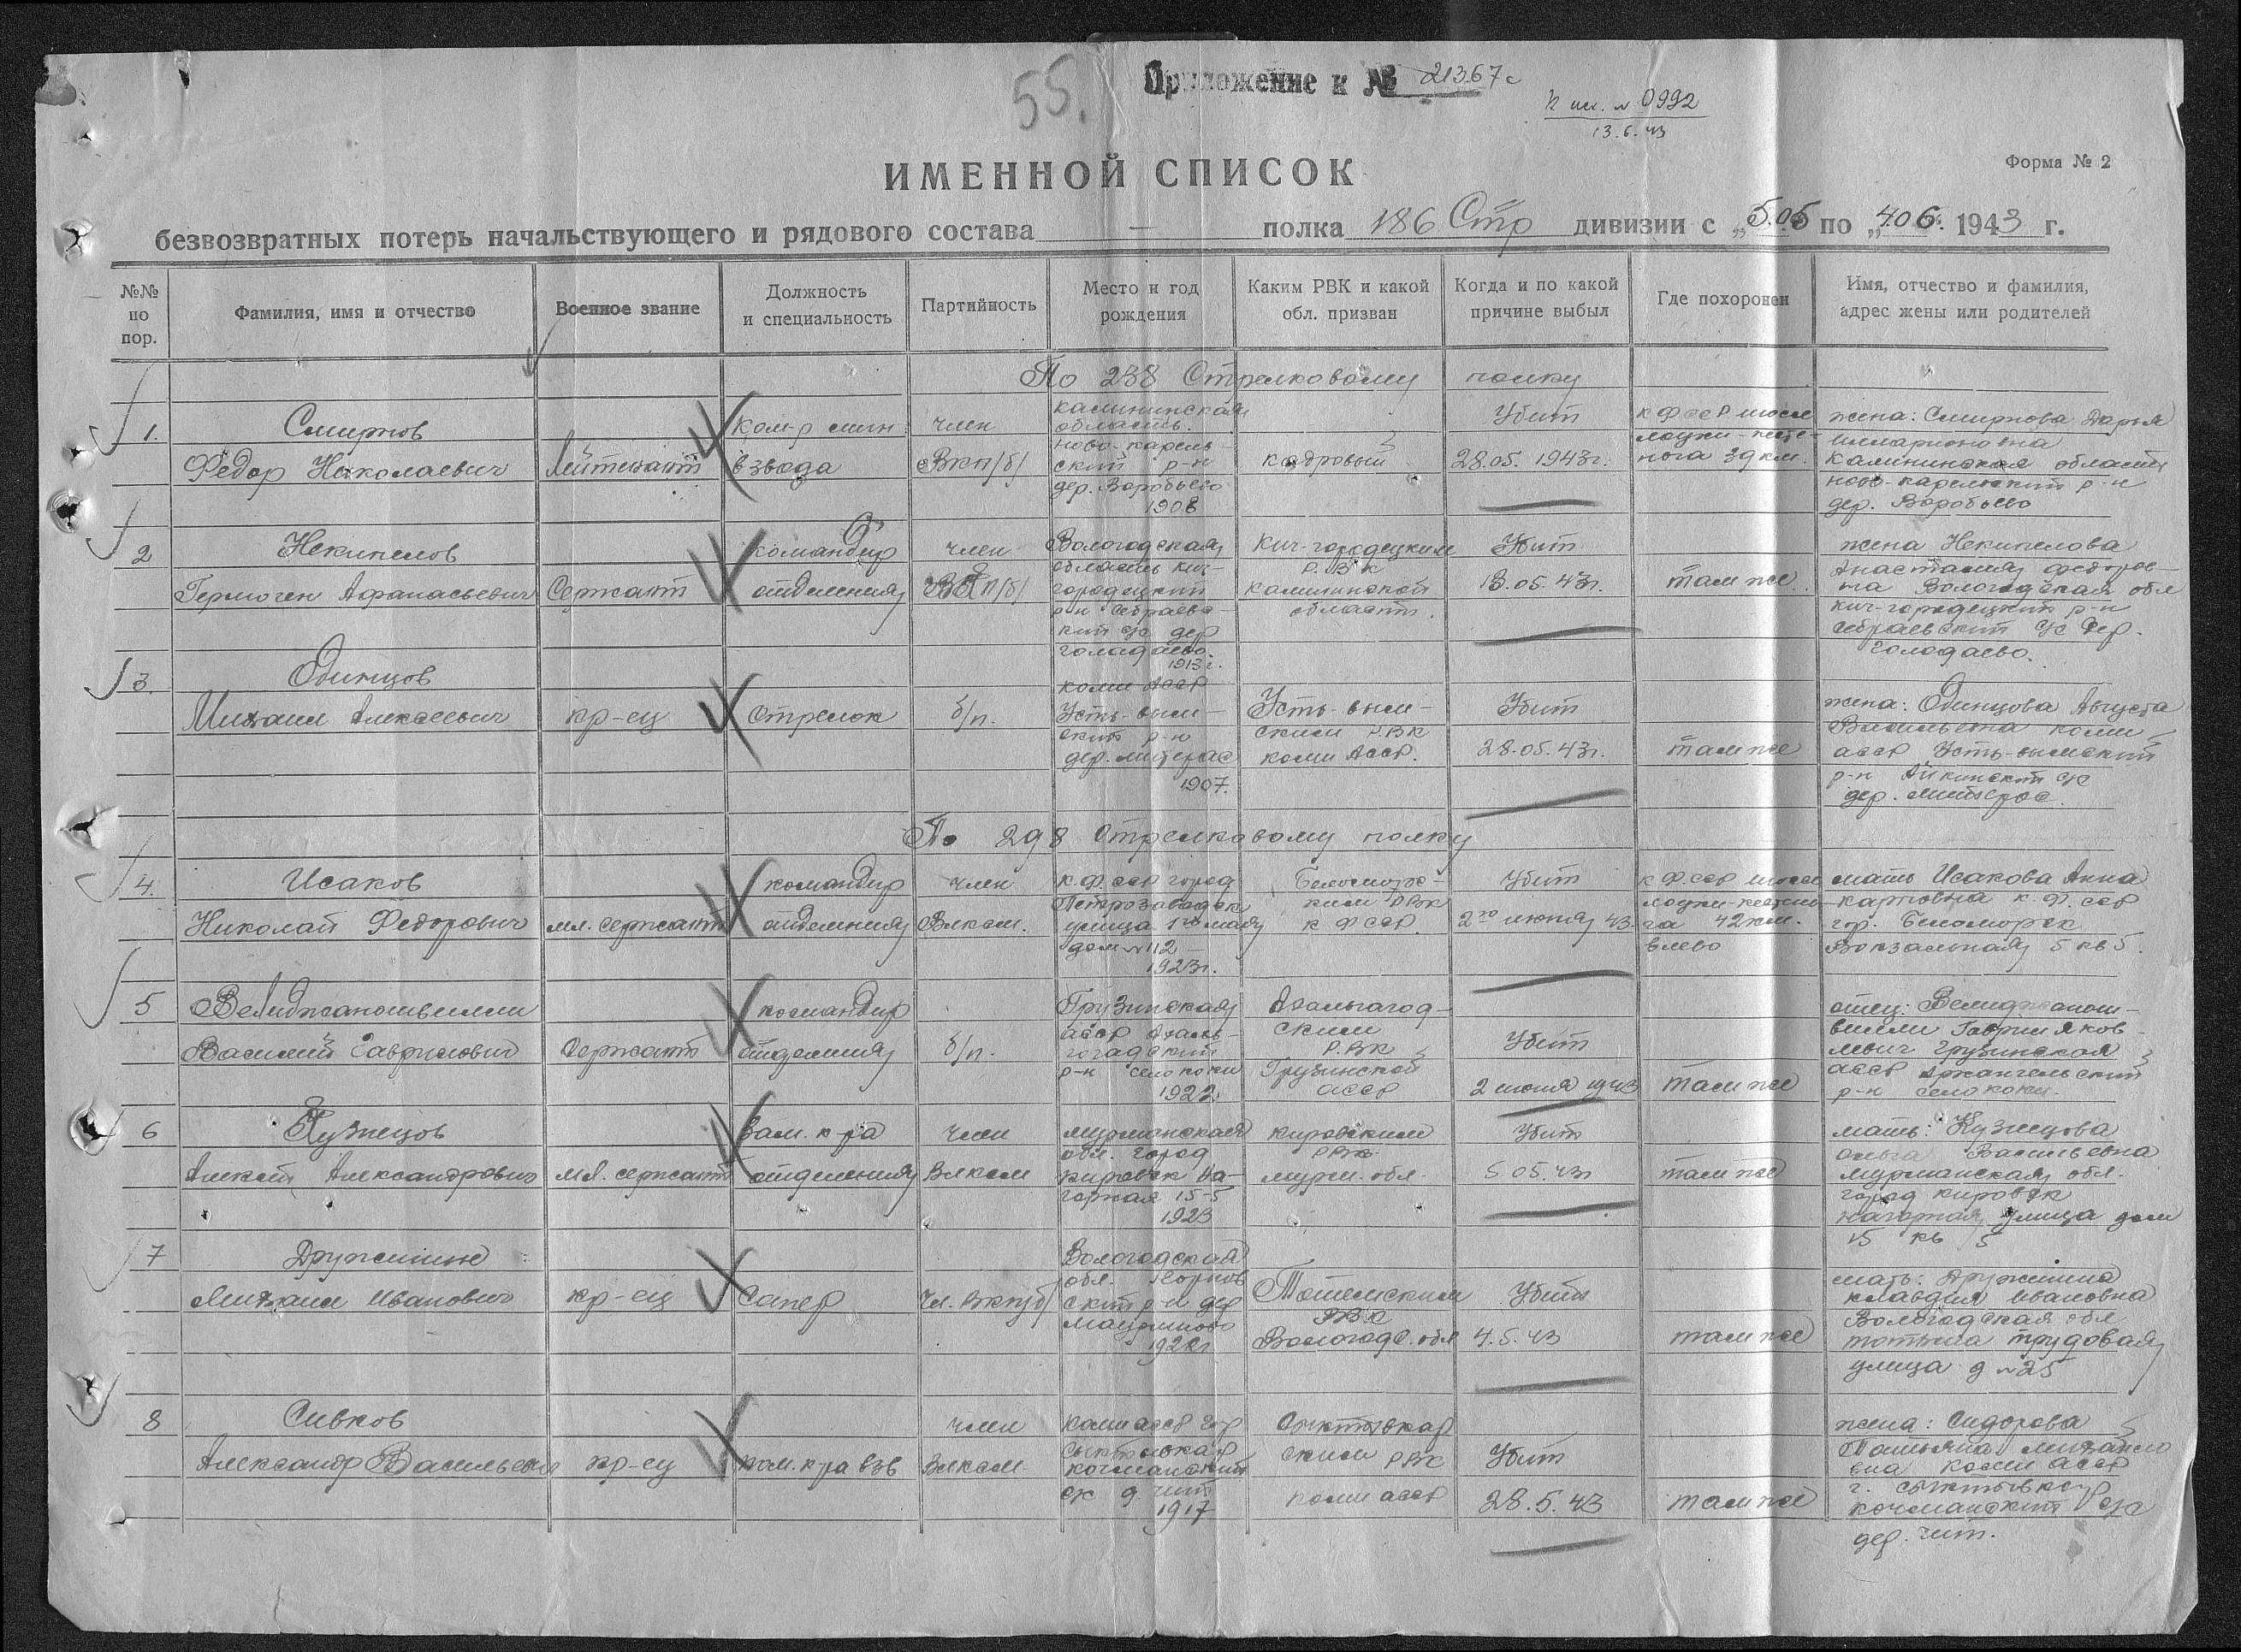 55.
Приложение к № 21367с
К исх. № 0992
13.6.43
Форма № 2
ИМЕННОЙ СПИСОК
безвозвратных потерь начальствующего и рядового состава — полка 186 Стр дивизии с „5.05 по „4.06. 1943 г.
№№ по пор.
Фамилия, имя и отчество
Военное звание
Должность и специальность
Партийность
Место и год рождения
Каким РВК и какой обл. призван
Когда и по какой причине выбыл
Где похоронен
Имя, отчество и фамилия, адрес жены или родителей
По 238 Стрелковому полку
1.
Смирнов
Федор Николаевич
Лейтенант
ком-р мин
взвода
член
ВКП/б/
Калининская
область.
Ново-карель-
ский р-н
дер. Воробьево
1908
кадровый
Убит
28.05.1943г.
КФССР шоссе
лоухи-кесте-
нога 39 км.
жена: Смирнова Дарья
Илларионовна
Калининская область
ново-карельский р-н
дер. Воробьево
2
Некипелов
Гермоген Афанасьевич
Сержант
командир
отделения
член
ВКП/б/
Вологодская
область кич-
городецкий
р-н Сараевс-
кий с/с дер
голодаево.
1913г.
Кич-городецким
Р.В.К
калининской
области.
Убит
18.05.43г.
там же
жена Некипелова
Анастасия федоров-
на Вологодская обл
кич-городецкий р-н
с/с дер.
Голодаево.
3.
Одинцов
Михаил Алексеевич
кр-ец
Стрелок
б/п.
коми АССР
Усть-вым-
ский р-н
дер.
1907.
Усть-вым-
ским РВК
коми АССР.
Убит
28.05.43г.
там же
жена: Одинцова Августа
Васильевна коми
АССР Усть-вымский
р-н Айкинский с/с
дер.
По 298 Стрелковому полку
4.
Исаков
Николай Федорович
мл. сержант
командир
отделения
член
Влксм.
К.Ф.ССР город
Петрозаводск
улица 1го мая
дом №12
1923г.
Беломорс-
ким РВК
КФССР.
Убит
2го июня 43.
КФССР шоссе
лоухи-кестень-
га 42 км.
влево
мать Исакова Анна
карповна К.Ф.ССР
гор. Беломорск
Вокзальная 5 кв 5.
5
Велиджанашвили
Василий Гаврилович
Сержант
командир
отделения
б/п.
Грузинская
АССР Ахаль-
гогадский
р-н село коки
1922г.
Ахалгагод-
ским
Р.ВК
Грузинской
АССР
Убит
2 июня 1943
там же
отец: Велиджанаш-
вили Гаврил Яков-
левич Грузинская
АССР
р-н село коки.
6
Кузнецов
Алексей Александрович
мл. сержант
Зам. к-ра
отделения
член
Влксм
мурманская
обл. город
кировск На-
горная 15-5
1923
кировским
РВК
мурм. обл.
Убит
5.05.43г
там же
мать: Кузнецова
Ольга Васильевна
мурманская обл.
город кировск
нагорная улица дом
15 кв 5
7
Дружинин
Михаил Иванович
кр-ец
Сапер
Чл. ВКП/б/
Вологодская
обл.
ский р-н дер
1922г
Тотемским
РВК
Вологодс. обл
Убит
4.5.43
там же
мать: Дружинина
клавдия Ивановна
Вологодская обл
тотьма трудовая
улица д №25
8
Сивков
Александр Васильевич
кр-ец
пом. к-ра взв
член
Влксм
коми АССР гор
Сыктывкар
кочпонский
с/с д. чит
1917
Сыктывкар
ским РВК
коми АССР
Убит
28.5.43
там же
жена: Сидорова
Татьяна михайло
вна коми АССР
г. сыктывкар
с/с
дер. чит.